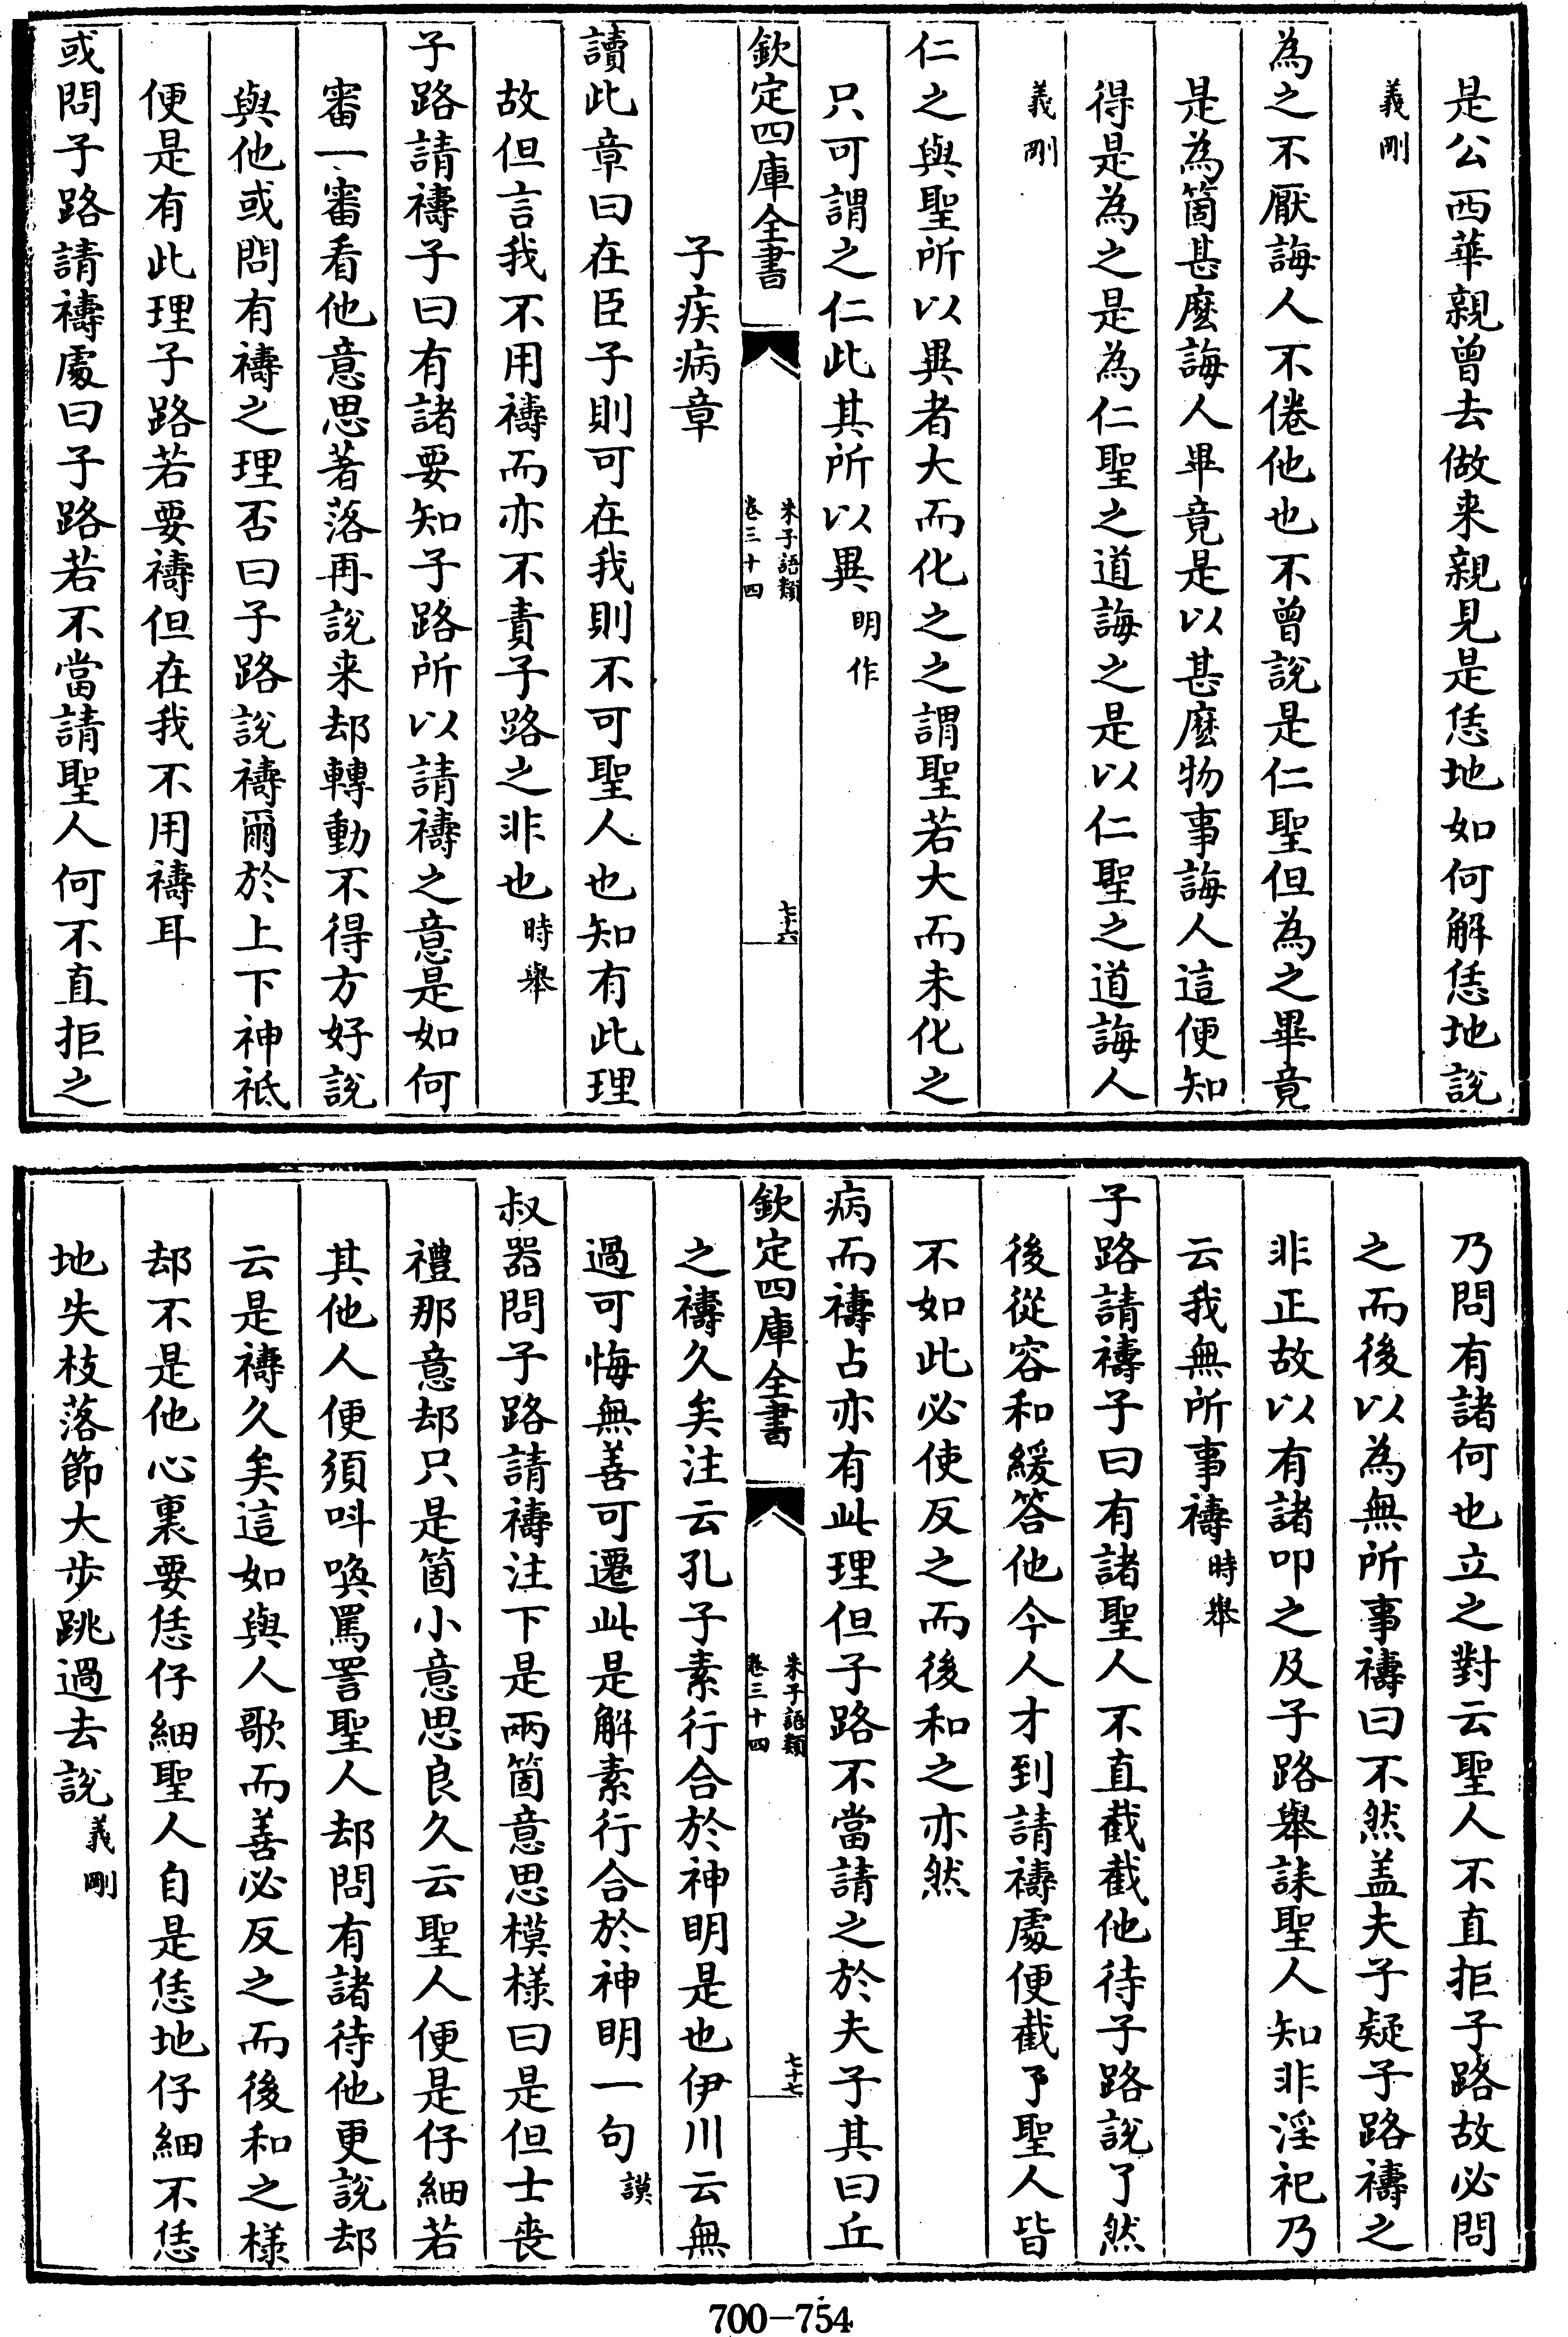 是公西華親曾去做来親見是恁地如何解恁地說
義剛
為之不厭誨人不倦他也不曾說是仁聖但為之畢竟
是為箇甚麽誨人畢竟是以甚麽物事誨人這便知
得是為之是為仁聖之道誨之是以仁聖之道誨人
義剛
仁之與聖所以異者大而化之之謂聖若大而未化之
只可謂之仁此其所以異明作
欽定四庫全書
朱子語類
卷三十四
七十六
子疾病章
讀此章曰在臣子則可在我則不可聖人也知有此理
故但言我不用禱而亦不責子路之非也時舉
子路請禱子曰有諸要知子路所以請禱之意是如何
審一審看他意思著落再說来却轉動不得方好說
與他或問有禱之理否曰子路說禱爾於上下神祗
便是有此理子路若要禱但在我不用禱耳
或問子路請禱處曰子路若不當請聖人何不直拒之
乃問有諸何也立之對云聖人不直拒子路故必問
之而後以為無所事禱曰不然盖夫子疑子路禱之
非正故以有諸叩之及子路舉誄聖人知非淫祀乃
云我無所事禱時舉
子路請禱子曰有諸聖人不直截截他待子路說了然
後從容和緩答他今人才到請禱處便截了聖人皆
不如此必使反之而後和之亦然
病而禱占亦有此理但子路不當請之於夫子其曰丘
欽定四庫全書
朱子語類
卷三十四
七十七
之禱久矣注云孔子素行合於神明是也伊川云無
過可悔無善可遷此是解素行合於神明一句謨
叔器問子路請禱注下是兩箇意思模様曰是但士喪
禮那意却只是箇小意思良久云聖人便是仔細若
其他人便須呌喚罵詈聖人却問有諸待他更說却
云是禱久矣這如與人歌而善必反之而後和之様
却不是他心裏要恁仔細聖人自是恁地仔細不恁
地失枝落節大步跳過去說義剛
700-754